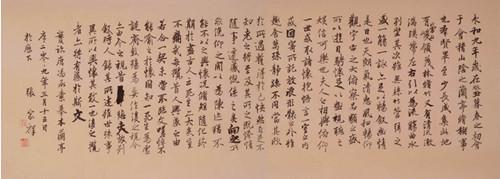 永和九年歲在癸丑暮春之初會
于會稽山陰之蘭亭脩稧事
也群賢畢至少長咸集此地
有崇山峻領茂林脩竹又有清流激
湍暎帶左右引以為流觴曲水
列坐其次雖無絲竹管弦之
盛一觴一詠亦足以暢敘幽情
是日也天朗氣清惠風和暢仰
觀宇宙之大俯察品類之盛
所以遊目騁懷足以極視聽之
娛信可樂也夫人之相與俯仰
一世或取諸懷抱悟言一室之內
或因寄所託放浪形骸之外雖
趣舍萬殊靜躁不同當其欣
於所遇蹔得於己快然自足不
知老之將至及其所之既惓情
隨事遷感慨係之矣向之所
欣俛仰之閒以為陳迹猶不
能不以之興懷況脩短隨化終
期於盡古人云死生亦大矣豈
不痛哉每攬昔人興感之由
若合一契未嘗不臨文嗟悼不
能喻之於懷固知一死生為虛
誕齊彭殤為妄作後之視今
亦由今之視昔悲夫故列
敘時人錄其所述雖世殊事
異所以興懷其致一也後之攬
者亦將有感於斯文
唐馮承素摹本蘭亭
二零一九年六月十五日
於歷下 張家祥